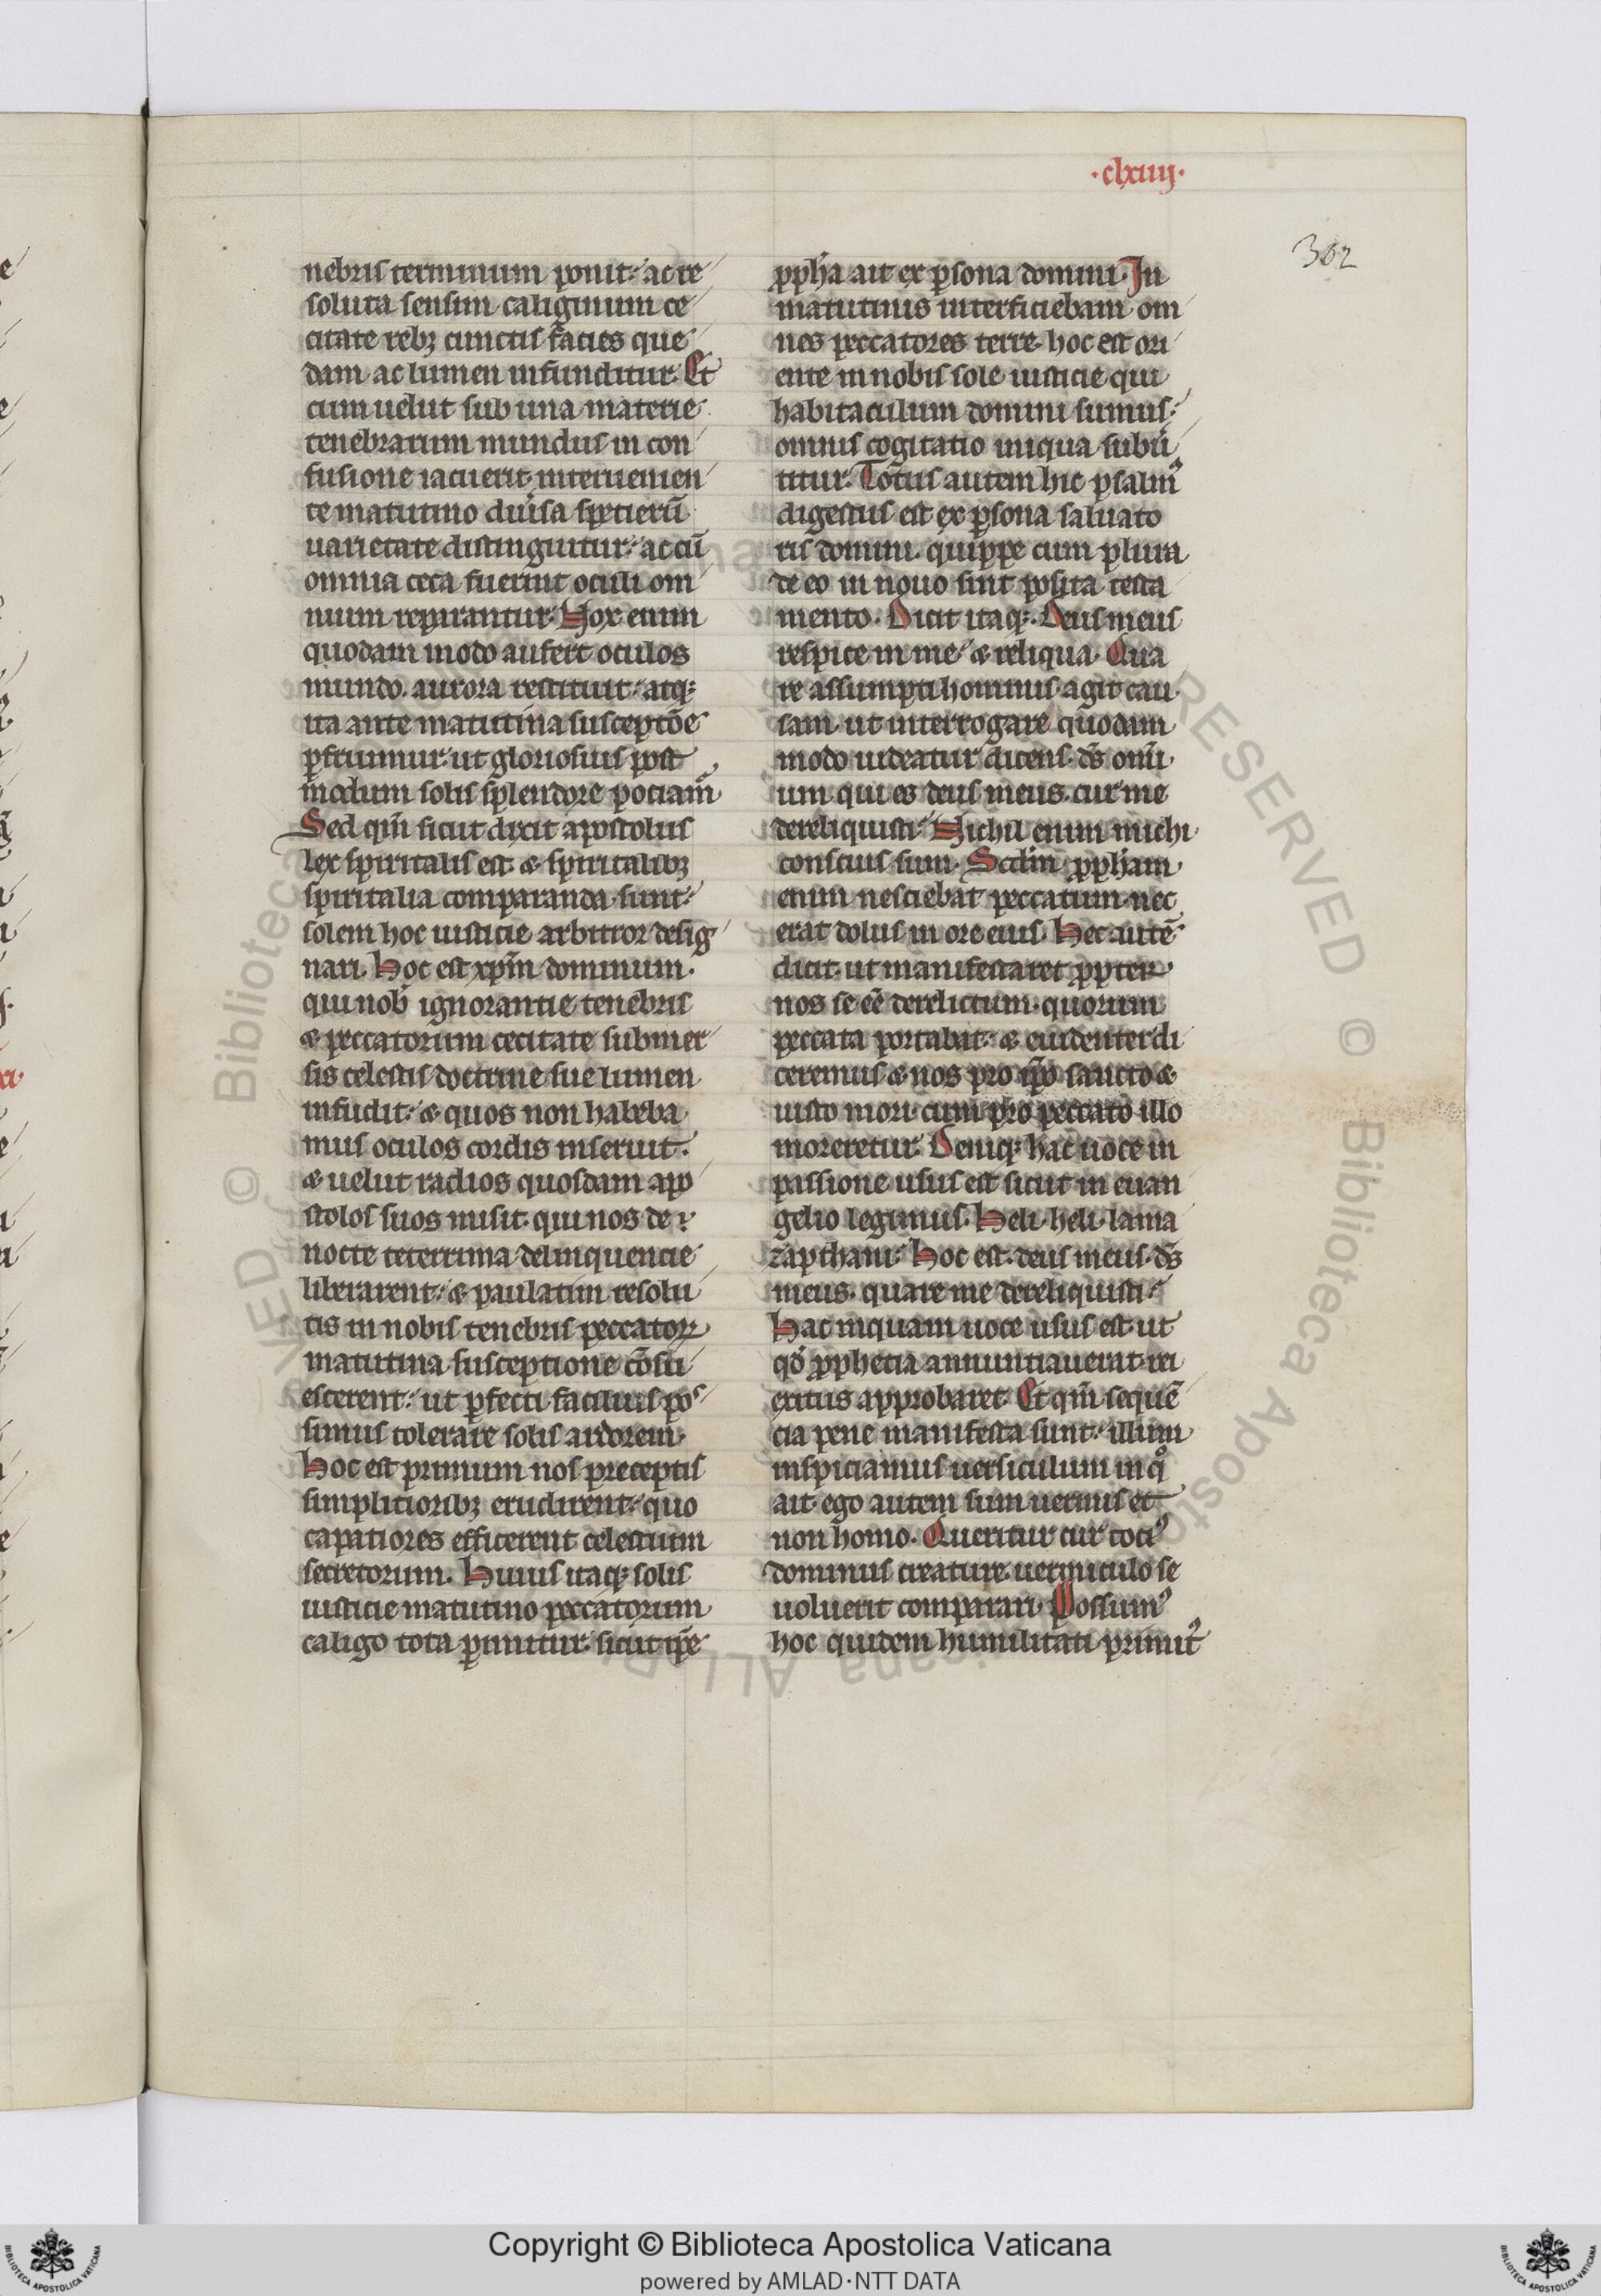 ·clxiiij·
302
nebris terminum ponit: ac re
soluta sensim caliginum ce
citate rebꝫ cunctis facies que
dam ac lumen infunditur. Et
cum uelut sub una materie
tenebrarum mundus in con
fusione iacuerit interuenien
te matutino diuͥsa specierū
uarietate distinguitur: ac cū
omnia ceca fuerint oculi om
nium reparantur. Nox enim
quodam modo aufert oculos
mundo. aurora restituit: atqꝫ
ita ante matutina susceptōe
ꝑfruimur. ut gloriosius post
modum solis splendore pociam̄
Sed qm̄ sicut dixit apostolus
lex spiritalis est. & spiritalibꝫ
spiritalia comparanda sunt:
solem hoc iusticie arbitror desig
nari. Hoc est xp̄m dominum.
qui nob̵ ignorantie tenebris
& peccatorum cecitate submer
sis celestis doctrine sue lumen
infudit: & quos non habeba
mus oculos cordis inseruit.
& uelut radios quosdam apo
stolos suos misit. qui nos de
nocte teterrima delinquencie
liberarent: & paulatim resolu
tis in nobis tenebris peccatoꝝ
matutina susceptione cōsu
escerent: ut ꝑfecti facilius pos
simus tolerare solis ardorem.
Hoc est primum nos preceptis
simplicioribꝫ erudirent: quo
capatiores efficerent celestium
secretorum. Huius itaqꝫ solis
iusticie matutino peccatorum
caligo tota ꝑimitur. sicut ip̄e
ꝓph̄a ait ex ꝑsona domini. In
matutinis interficiebam om
nes peccatores terre. hoc est ori
ente in nobis sole iusticie qui
habitaculum domini sumus:
omnis cogitatio iniqua subū
titur. Totus autem hic psalmꝰ
digestus est ex ꝑsona saluato
ris domini. quippe cum plura
de eo in nouo sint posita testa
mento. Dicit itaqꝫ. Deus meus
respice in me & reliqua. Qua
re assumpti hominis agit cau
sam. ut interrogare quodam
modo uideatur dicens. ds̄ omi
um qui es deus meus. cur me
dereliquisti. Nichil enim michi
conscius sum. Scd̄m ꝓph̄iam
enim nesciebat peccatum. nec
erat dolus in ore eius. Hec autē
dicit. ut manifestaret ꝓpter
nos se eē derelictum. quorum
peccata portabat: & euidenter di
ceremus & nos pro ip̄o sancto &
iusto mori. cum pro peccato illo
moreretur. Deniqꝫ hac uoce in
passione usus est sicut in euan
gelio legimus. Heli. heli. lama
zapthani. Hoc est. deus meus. ds̄
meus. quare me dereliquisti.
Hac inquam uoce usus est. ut
qđ ꝓphetia annuntiauerat. rei
exitus approbaret. Et qm̄ sequē
cia pene manifesta sunt: illum
inspiciamus uersiculum in qͦ
ait. ego autem sum uermis et
non homo. Queritur cur totiꝰ
dominus creature. uermiculo se
uoluerit comparari. Possumꝰ
hoc quidem humilitati primit᷒
Copyright © Biblioteca Apostolica Vaticana
powered by AMLAD·NTT DATA